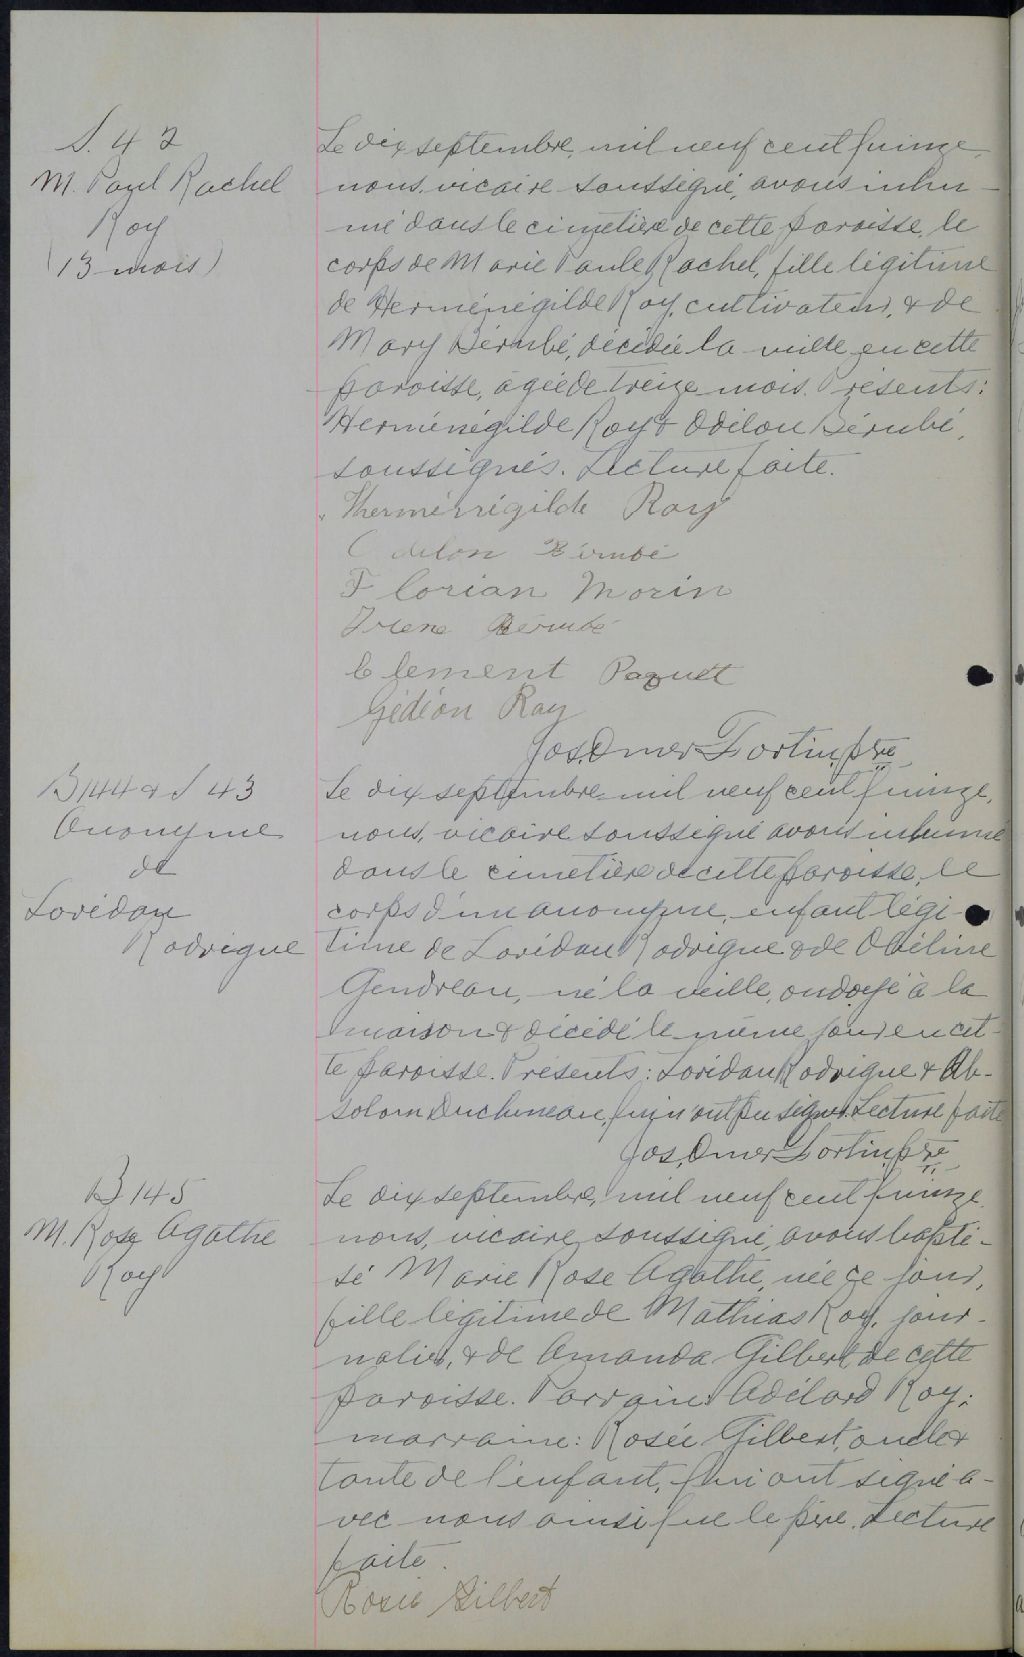 S. 42
M. Paul Rachel
Roy
(13 mois)
Le dix septembre, mil neuf cent quinze,
nous, vicaire soussigné, avons inhu-
mé dans le cimetière de cette paroisse, le
corps de Marie Paule Rachel, fille légitime
de Herménégilde Roy, cultivateur, & de
Mary Bérubé, décédée la veille en cette
paroisse, agée de treize mois. Présents:
Herménégilde Roy & Odilon Bérubé,
soussignés. Lecture faite.
Therménégilde Roy
Odilon Bérubé
Florian Morin
Irene Bérubé
Clement Paquet
Gédéon Roy
Jos. Omer Fortin, ptre
B 144 & S 43
Anonyme
de
Loridan
Rodrigue
Le dix septembre, mil neuf cent quinze,
nous, vicaire soussigné avons inhumé
dans le cimetière de cette paroisse, le
corps d'un anonyme, enfant légi-
time de Loridan Rodrigue & de Obéline
Gendreau, né la veille, ondoyé à la
maison & décédé le même jour en cet-
te paroisse. Présents: Loridan Rodrigue & Ab-
solom Duchineau, qui n'ont pu signer. Lecture faite
Jos. Omer Fortin, ptre
B 145
M. Rose Agathe
Roy
Le dix septembre, mil neuf cent quinze,
nous, vicaire soussigné, avons bapti-
sé Marie Rose Agathe, née ce jour,
fille légitime de Mathias Roy, jour-
nalier, & de Amanda Gilbert de cette
paroisse. Parrain: Adélard Roy;
marraine: Rosée Gilbert, oncle &
tante de l'enfant, qui ont signé a-
vec nous ainsi que le père. Lecture
faite.
Rosie Gilbert